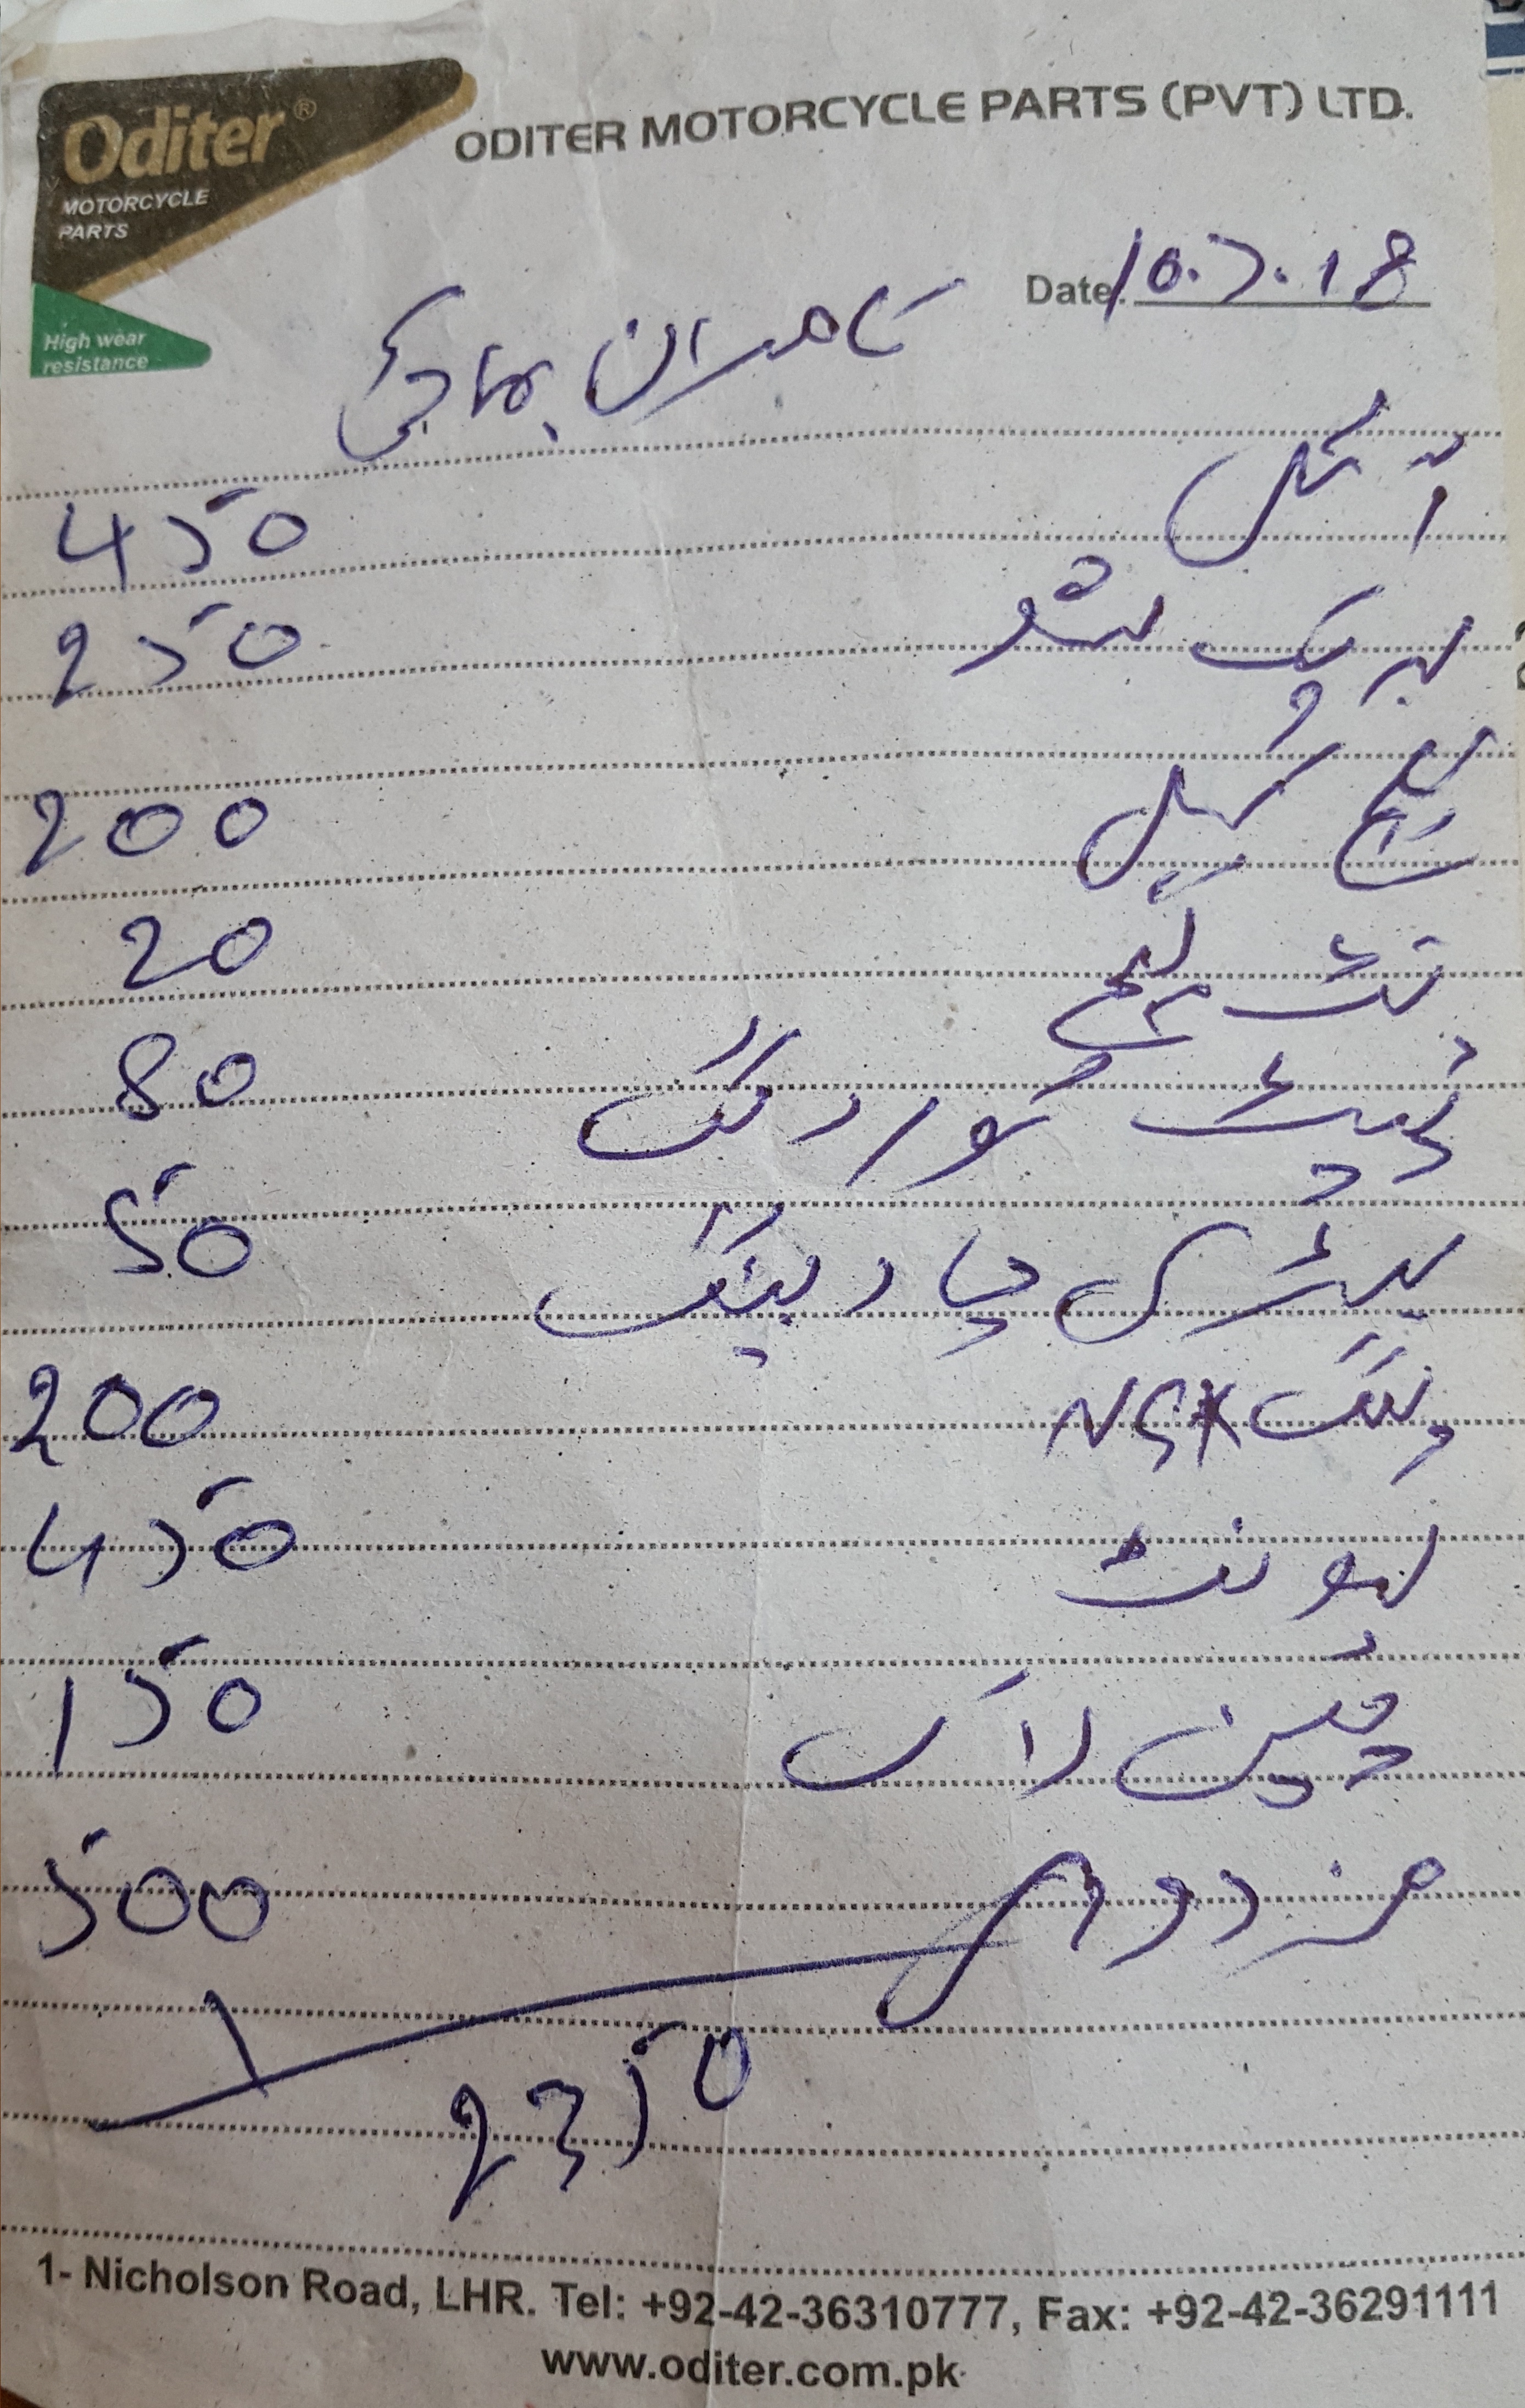 Oditer®
MOTORCYCLE
PARTS
High wear
resistance
ODITER MOTORCYCLE PARTS (PVT) LTD.
Date. 10.7.18
کامران بھائی
آئل 450
بریک شو 250
کلچ کیبل 200
نٹ کلچ 20
ہیڈ کور رنگ 80
بیٹری چارجنگ 50
NGK پلگ 200
یونٹ 450
چین لاک 150
مزدوری 500
2350
1- Nicholson Road, LHR. Tel: +92-42-36310777, Fax: +92-42-36291111
www.oditer.com.pk